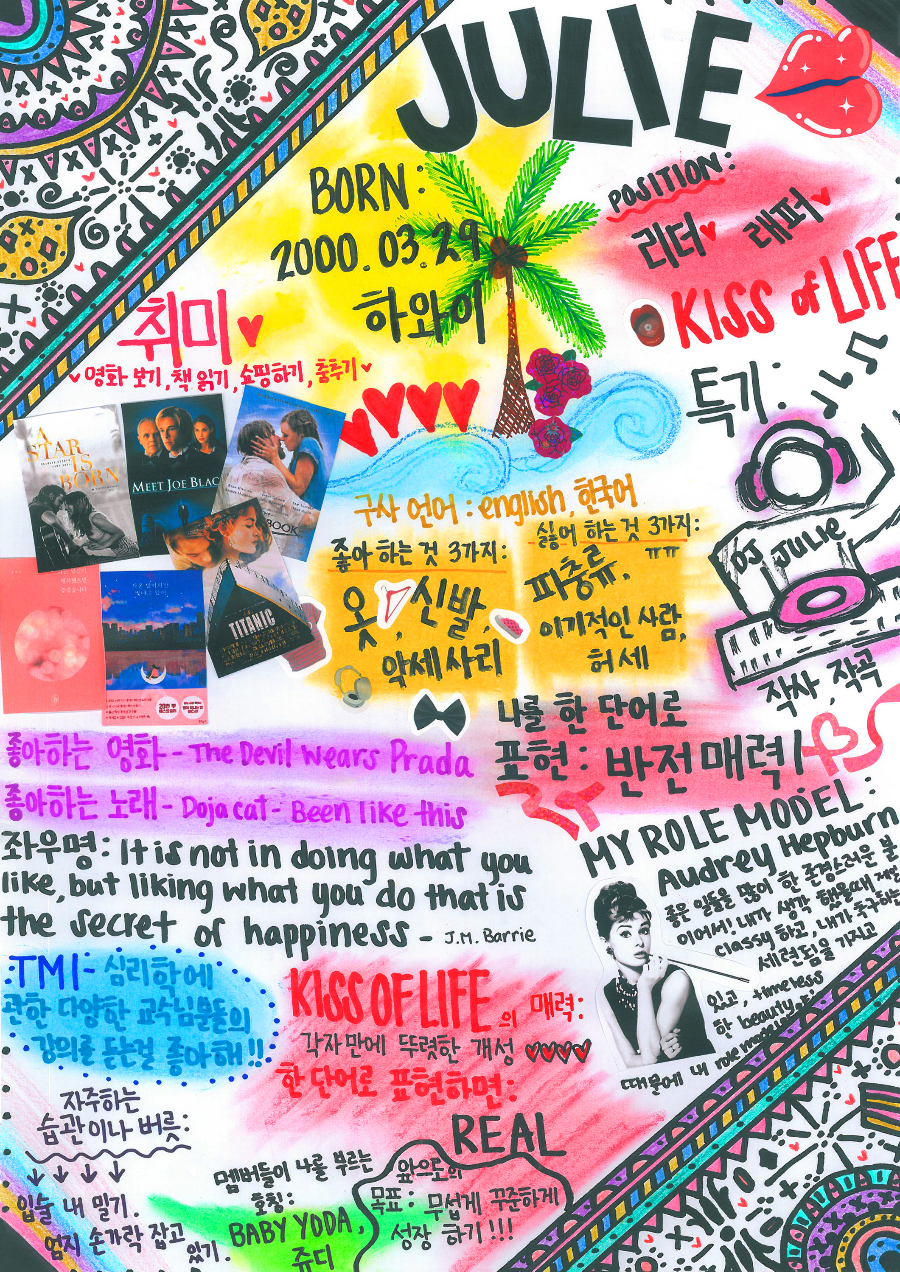 JULIE
BORN:
2000.03.29
하와이
POSITION:
리더 래퍼
KISS of LIFE
취미
영화 보기, 책 읽기, 쇼핑하기, 춤추기
특기:
DJ JULIE
작사, 작곡
A
STAR
IS
BORN
MEET JOE BLAC
BOOK
TITANIC
구사 언어 : english, 한국어
좋아 하는 것 3가지:
옷, 신발,
악세사리
싫어 하는 것 3가지:
ㅠㅠ
파충류,
이기적인 사람,
허세
나를 한 단어로
표현: 반전매력
좋아하는 영화 - The Devil Wears Prada
좋아하는 노래 - Doja cat - Been like this
좌우명: It is not in doing what you
like, but liking what you do that is
the secret of happiness - J.M. Barrie
MY ROLE MODEL:
Audrey Hepburn
좋은 일들을 많이 한 존경스러운 분
이어서! 내가 생각 했을때 제일
classy 하고, 내가 추구하는
세련됨을 가지고
있고, timeless
한 beauty
때문에 내 role model
TMI - 심리학에
관한 다양한 교수님분들의
강의를 듣는걸 좋아해!!
KISS OF LIFE의 매력:
각자만에 뚜렷한 개성
한 단어로 표현하면:
REAL
자주하는
습관이나 버릇:
입술 내 밀기.
엄지 손가락 잡고
있기.
멤버들이 나를 부르는
호칭:
BABY YODA,
쥬디
앞으로의
목표: 무섭게 꾸준하게
성장 하기!!!